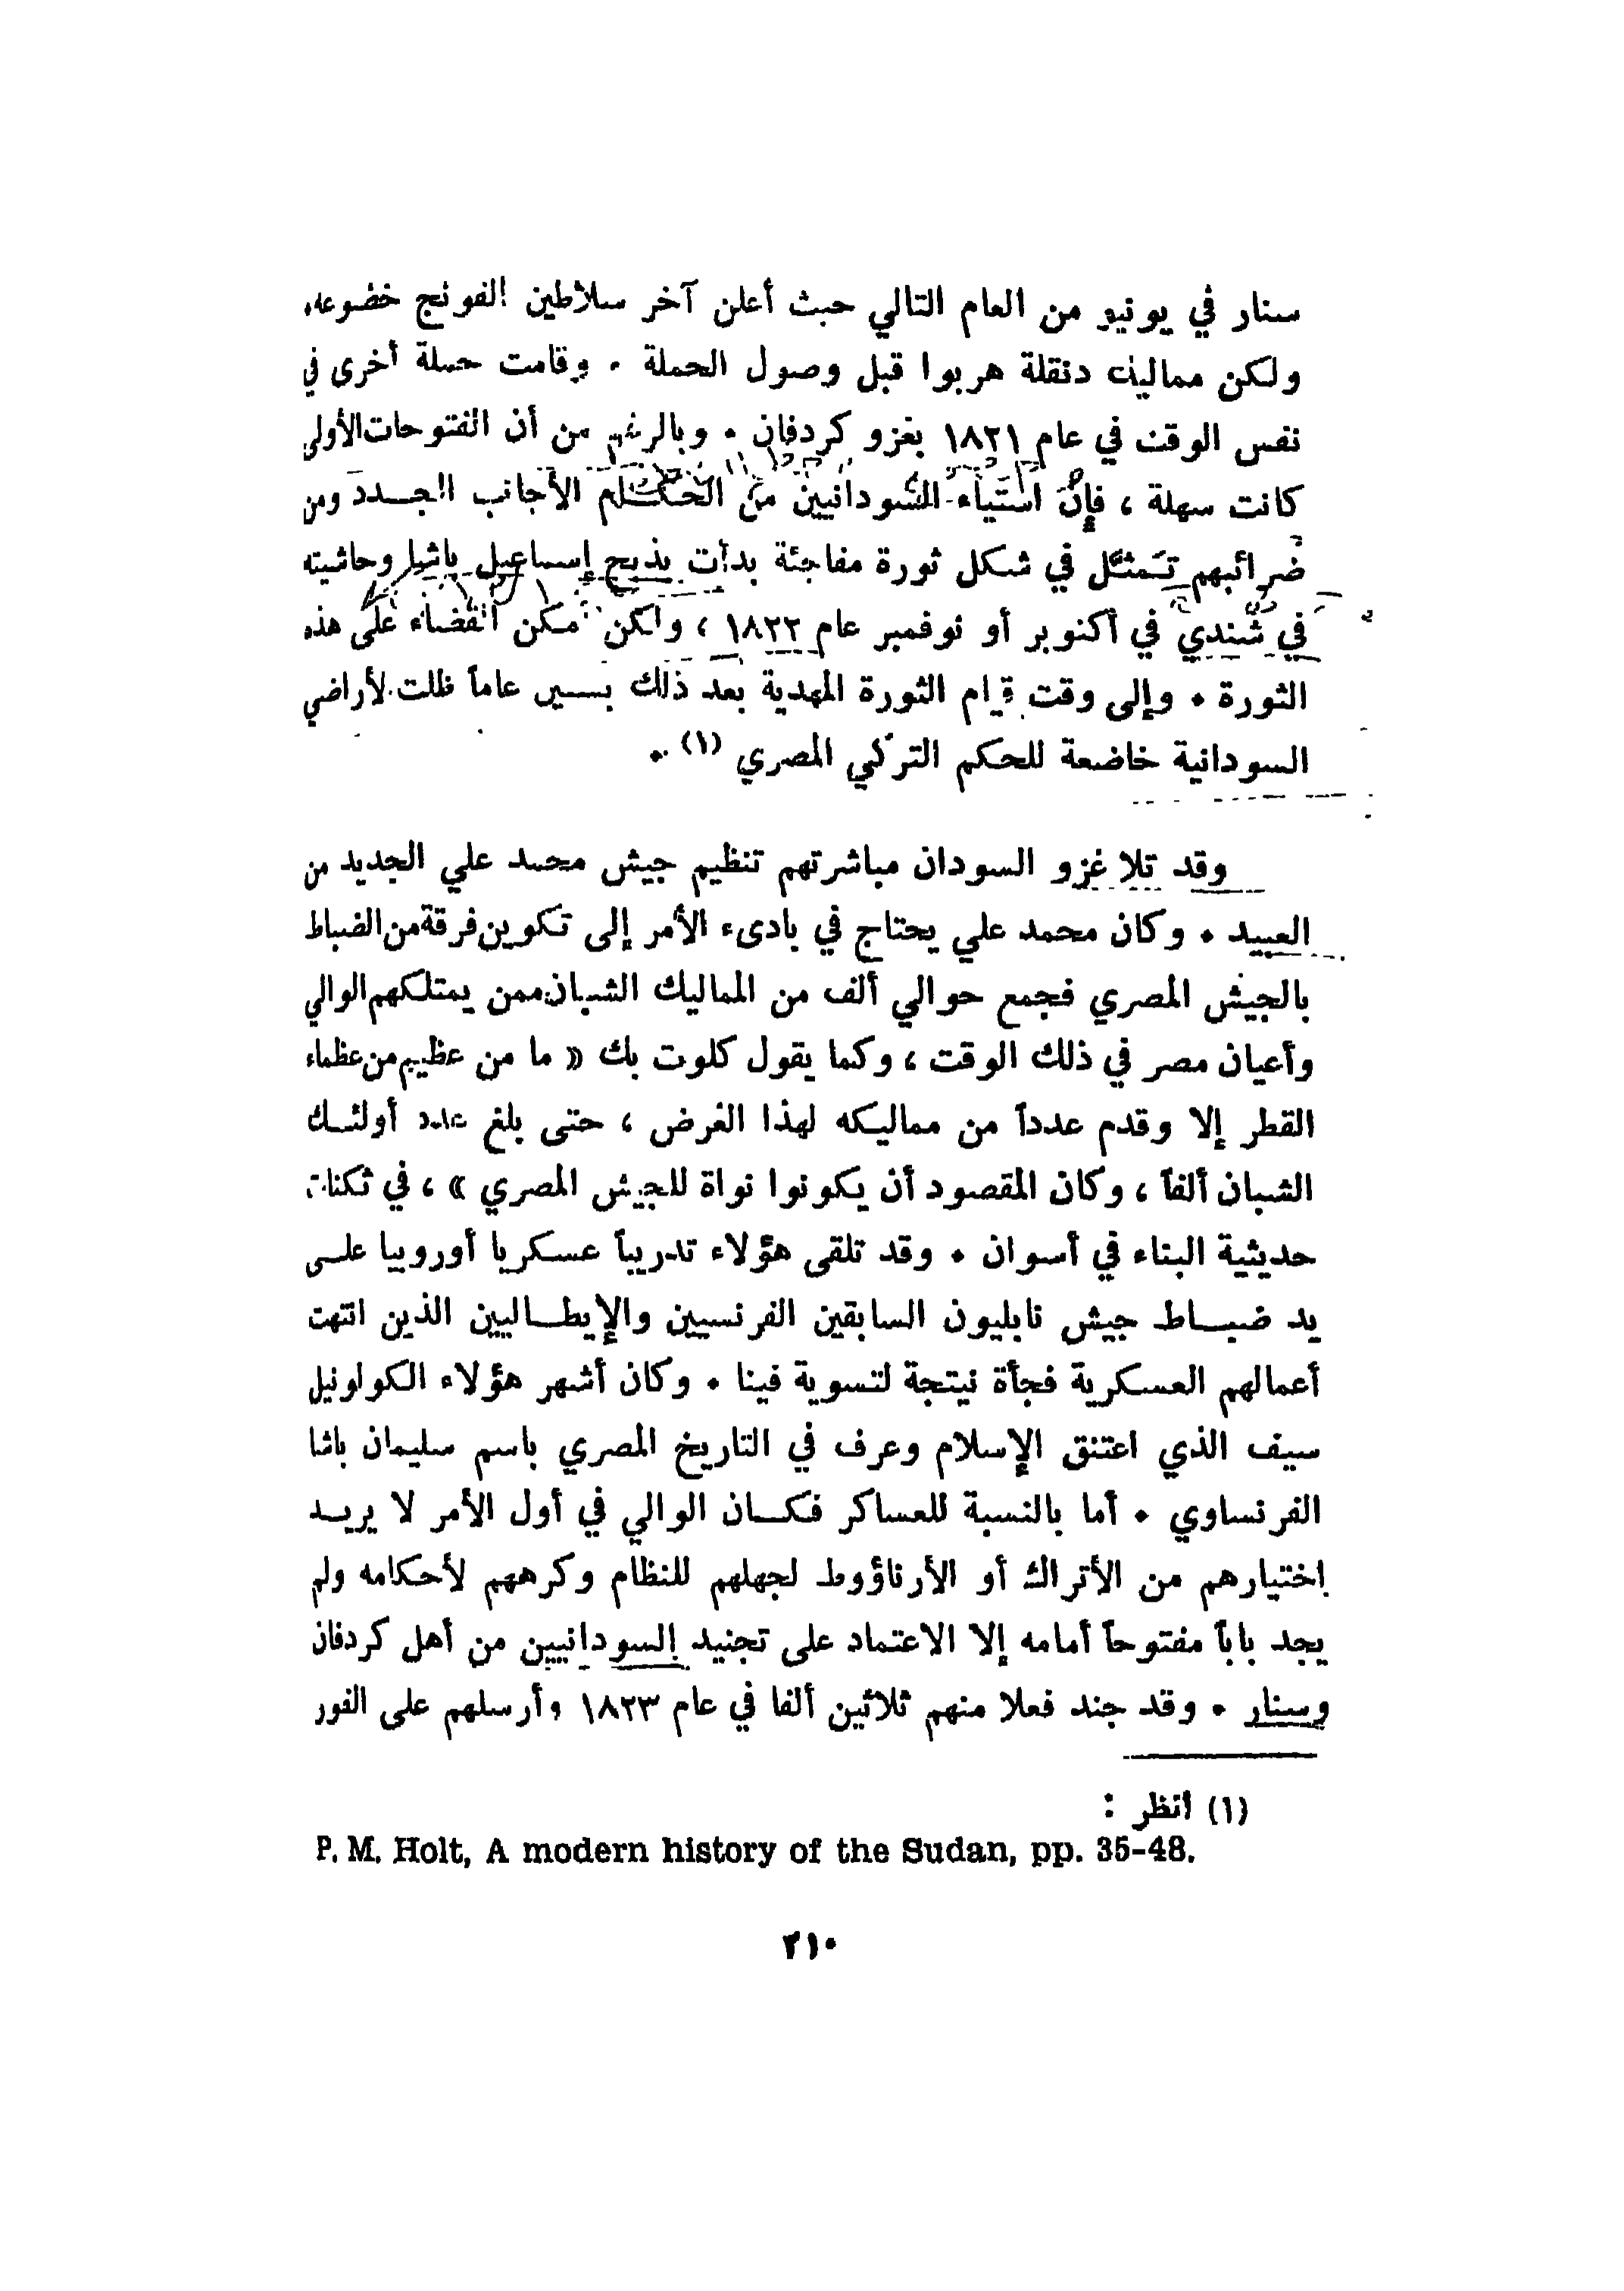 سنار في يونيو من العام التالي حيث أعلن آخر سلاطين الفونج خضوعه،
ولكن مماليك دنقلة هربوا قبل وصول الحملة . وقامت حملة أخرى في
نفس الوقت في عام ١٨٢١ بغزو كردفان . وبالرغم من أن الفتوحات الأولى
كانت سهلة ، فإن استياء السودانيين من الحكام الأجانب الجدد ومن
ضرائبهم تمثل في شكل ثورة مفاجئة بدأت بذبح إسماعيل باشا وحاشيته
في شندي في أكتوبر أو نوفمبر عام ١٨٢٢ ، ولكن أمكن القضاء على هذه
الثورة . وإلى وقت قيام الثورة المهدية بعد ذلك بستين عاماً ظلت الأراضي
السودانية خاضعة للحكم التركي المصري (١) .
وقد تلا غزو السودان مباشرتهم تنظيم جيش محمد علي الجديد من
العبيد . وكان محمد علي يحتاج في بادىء الأمر إلى تكوين فرقة من الضباط
بالجيش المصري فجمع حوالي ألف من المماليك الشبان ممن يمتلكهم الوالي
وأعيان مصر في ذلك الوقت ، وكما يقول كلوت بك « ما من عظيم من عظماء
القطر إلا وقدم عدداً من مماليكه لهذا الغرض ، حتى بلغ عدد أولئك
الشبان ألفاً ، وكان المقصود أن يكونوا نواة للجيش المصري » ، في ثكنات
حديثية البناء في أسوان . وقد تلقى هؤلاء تدريباً عسكريا أوروبيا على
يد ضباط جيش نابليون السابقين الفرنسيين والإيطاليين الذين انتهت
أعمالهم العسكرية فجأة نيتجة لتسوية فينا . وكان أشهر هؤلاء الكولونيل
سيف الذي اعتنق الإسلام وعرف في التاريخ المصري باسم سليمان باشا
الفرنساوي . أما بالنسبة للعساكر فكان الوالي في أول الأمر لا يريد
إختيارهم من الأتراك أو الأرناؤوط لجهلهم للنظام وكرههم لأحكامه ولم
يجد باباً مفتوحاً أمامه إلا الاعتماد على تجنيد السودانيين من أهل كردفان
وسنار . وقد جند فعلا منهم ثلاثين ألفا في عام ١٨٢٣ وأرسلهم على الفور
(١) انظر :
P. M. Holt, A modern history of the Sudan, pp. 35-48.
٢١٠